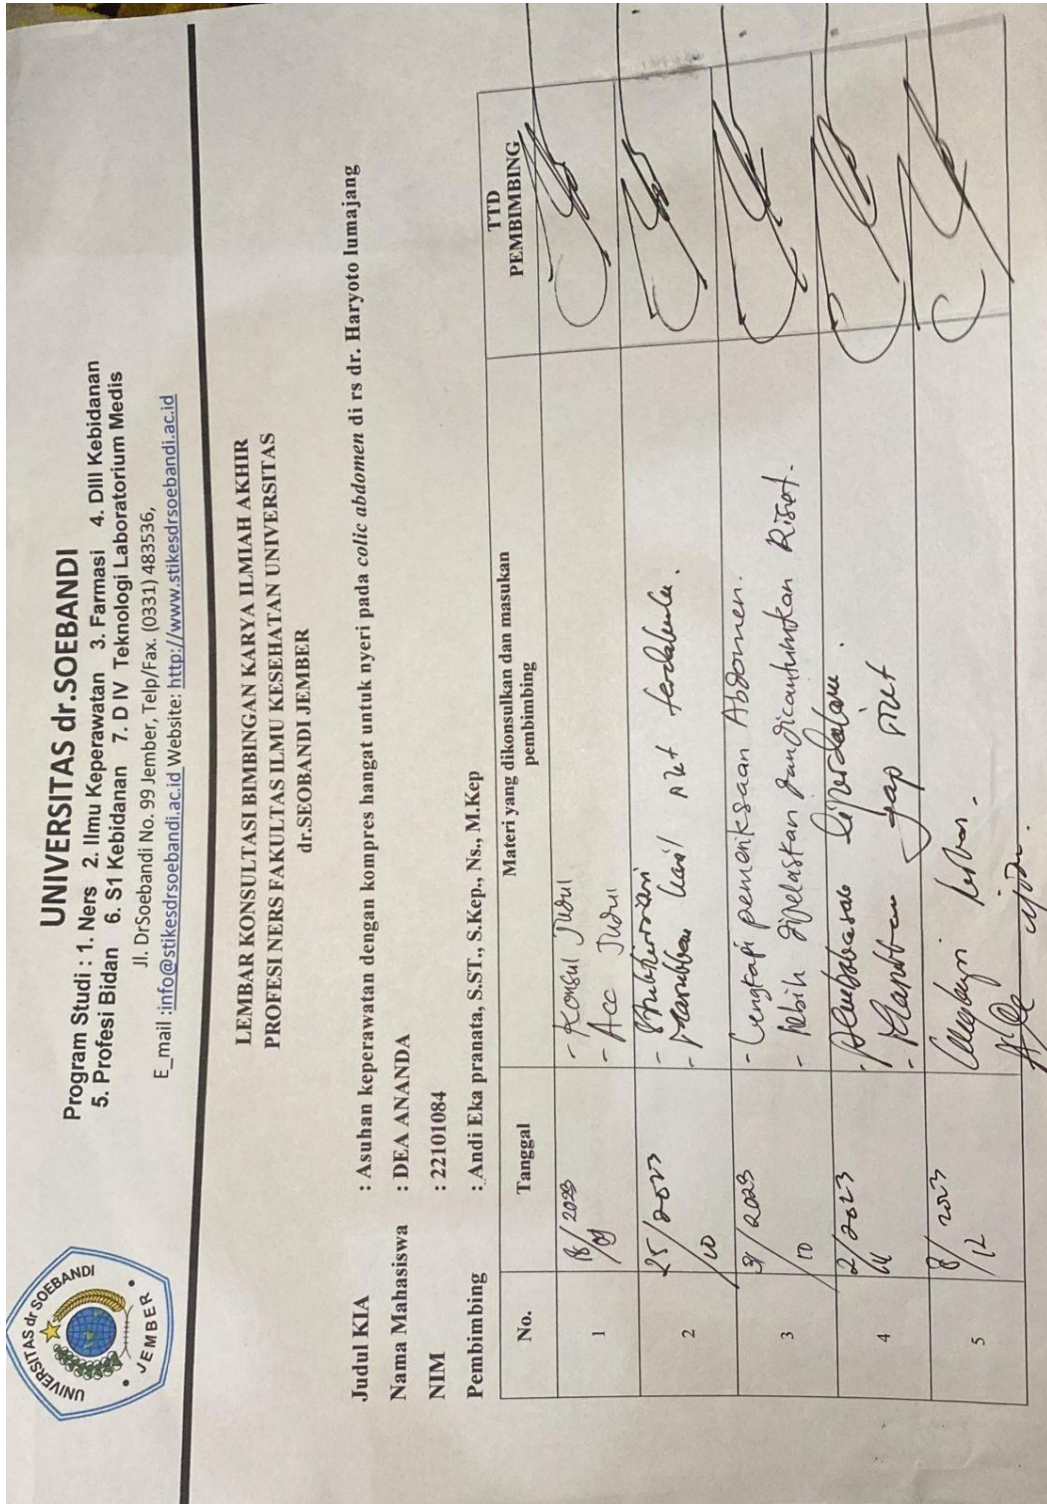 UNIVERSITAS dr SOEBANDI
JEMBER
UNIVERSITAS dr.SOEBANDI
Program Studi : 1. Ners 2. Ilmu Keperawatan 3. Farmasi 4. DIII Kebidanan
5. Profesi Bidan 6. S1 Kebidanan 7. D IV Teknologi Laboratorium Medis
Jl. DrSoebandi No. 99 Jember, Telp/Fax. (0331) 483536,
E_mail :info@stikesdrsoebandi.ac.id Website: http://www.stikesdrsoebandi.ac.id
LEMBAR KONSULTASI BIMBINGAN KARYA ILMIAH AKHIR
PROFESI NERS FAKULTAS ILMU KESEHATAN UNIVERSITAS
dr.SEOBANDI JEMBER
Judul KIA : Asuhan keperawatan dengan kompres hangat untuk nyeri pada colic abdomen di rs dr. Haryoto lumajang
Nama Mahasiswa : DEA ANANDA
NIM : 22101084
Pembimbing : Andi Eka pranata, S.ST., S.Kep., Ns., M.Kep
No. Tanggal Materi yang dikonsulkan dan masukan pembimbing TTD PEMBIMBING
1 18/09 2023 - Konsul Judul
- Acc Judul
2 25/10 2023
- Masukkan hasil terdahulu.
3 31/10 2023 - Lengkapi pemeriksaan Abdomen.
- lebih dijelaskan dan dicantumkan Riset.
4 2/11 2023 - Pembahasan diperdalam.
- Masukkan gap riset
5 8/12 2023